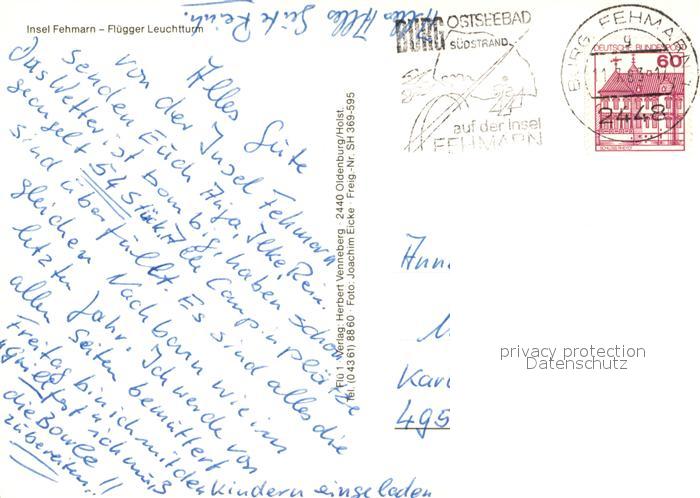 Insel Fehmarn – Flügger Leuchtturm
Alles Gute
von der Insel Fehmarn
senden Euch Anja, Ilke, Rein.
Das Wetter ist bombig, haben schon
geangelt 54 Stück. Alle Campinplätze
sind überfüllt. Es sind alles die
gleichen Nachbarn wie im
letzten Jahr. Ich werde von
allen Seiten bemuttert
Freitag bin ich mit den Kindern eingeladen
"Grillfest" ich muß
die Bowle
zubereiten!!
Alles Gute Rein.
Flü 1 · Verlag: Herbert Venneberg · 2440 Oldenburg/Holst.
Tel. (0 43 61) 88 60 · Foto: Joachim Eicke · Freig.-Nr. SH 369-595
BURG OSTSEEBAD
SÜDSTRAND
auf der Insel
FEHMARN
BURG, FEHMARN
2448
DEUTSCHE BUNDESPOST
60
Ann
Kar
495
privacy protection
Datenschutz